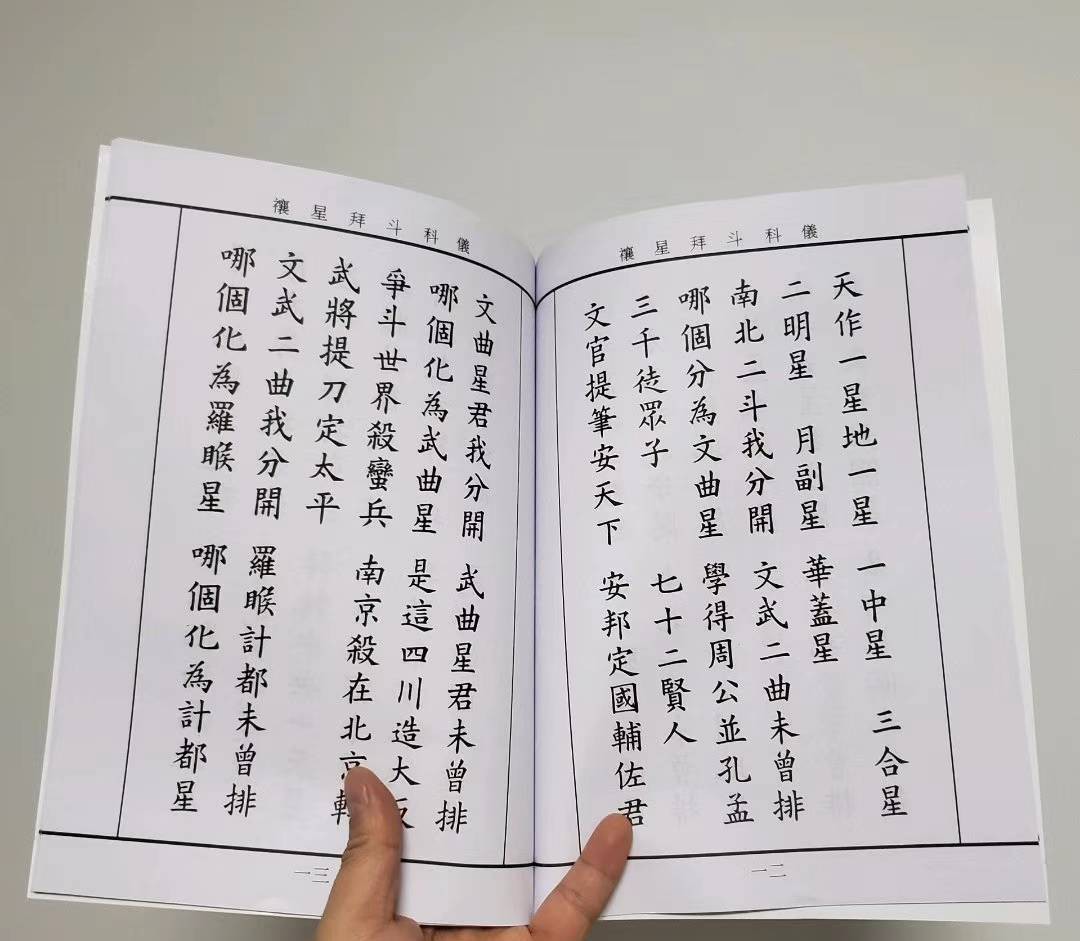 禳星拜斗科儀
天作一星地一星 一中星 三合星
二明星 月副星 華蓋星
南北二斗我分開 文武二曲未曾排
哪個分為文曲星 學得周公並孔孟
三千徒眾子 七十二賢人
文官提筆安天下 安邦定國輔佐君
一二
禳星拜斗科儀
文曲星君我分開 武曲星君未曾排
哪個化為武曲星 是這四川造大反
爭斗世界殺蠻兵 南京殺在北京
武將提刀定太平
文武二曲我分開 羅睺計都未曾排
哪個化為羅睺星 哪個化為計都星
一三